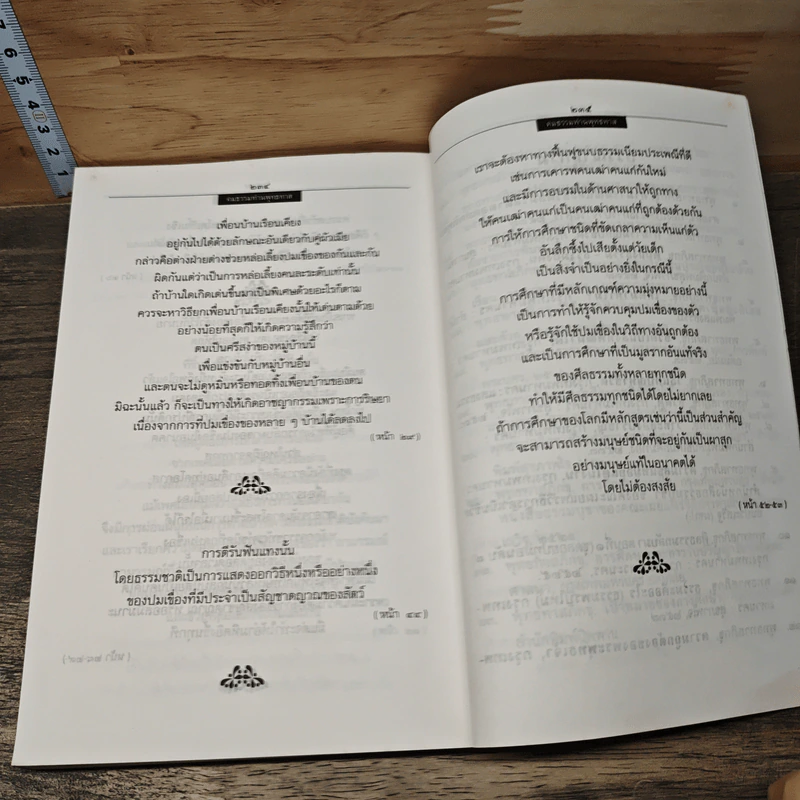 7
6
5
4
3
2
1
๒๓๔
คมธรรมท่านพุทธทาส
เพื่อนบ้านเรือนเคียง
อยู่กันไปได้ด้วยลักษณะอันเดียวกับคู่ผัวเมีย
กล่าวคือต่างฝ่ายต่างช่วยหล่อเลี้ยงปมเขื่องของกันและกัน
ผิดกันแต่ว่าเป็นการหล่อเลี้ยงคนละระดับเท่านั้น
ถ้าบ้านใดเกิดเด่นขึ้นมาเป็นพิเศษด้วยอะไรก็ตาม
ควรจะหาวิธียกเพื่อนบ้านเรือนเคียงนั้นให้เด่นตามด้วย
อย่างน้อยที่สุดก็ให้เกิดความรู้สึกว่า
ตนเป็นศรีสง่าของหมู่บ้านนี้
เพื่อแข่งขันกับหมู่บ้านอื่น
และตนจะไม่ดูหมิ่นหรือทอดทิ้งเพื่อนบ้านของตน
มิฉะนั้นแล้ว ก็จะเป็นทางให้เกิดอาชญากรรมเพราะการริษยา
เนื่องจากการที่ปมเขื่องของหลาย ๆ บ้านได้ลดลงไป
(หน้า ๒๙)
การตีรันฟันแทงนั้น
โดยธรรมชาติเป็นการแสดงออกวิธีหนึ่งหรืออย่างหนึ่ง
ของปมเขื่องที่มีประจำเป็นสัญชาตญาณของสัตว์
(หน้า ๔๔)
๒๓๕
คมธรรมท่านพุทธทาส
เราจะต้องหาทางฟื้นฟูขนบธรรมเนียมประเพณีที่ดี
เช่นการเคารพคนเฒ่าคนแก่กันใหม่
และมีการอบรมในด้านศาสนาให้ถูกทาง
ให้คนเฒ่าคนแก่เป็นคนเฒ่าคนแก่ที่ถูกต้องด้วยกัน
การให้การศึกษาชนิดที่ขัดเกลาความเห็นแก่ตัว
อันลึกซึ้งไปเสียตั้งแต่วัยเด็ก
เป็นสิ่งจำเป็นอย่างยิ่งในกรณีนี้
การศึกษาที่มีหลักเกณฑ์ความมุ่งหมายอย่างนี้
เป็นการทำให้รู้จักควบคุมปมเขื่องของตัว
หรือรู้จักใช้ปมเขื่องในวิถีทางอันถูกต้อง
และเป็นการศึกษาที่เป็นมูลรากอันแท้จริง
ของศีลธรรมทั้งหลายทุกชนิด
ทำให้มีศีลธรรมทุกชนิดได้โดยไม่ยากเลย
ถ้าการศึกษาของโลกมีหลักสูตรเช่นว่านี้เป็นส่วนสำคัญ
จะสามารถสร้างมนุษย์ชนิดที่จะอยู่กันเป็นผาสุก
อย่างมนุษย์แท้ในอนาคตได้
โดยไม่ต้องสงสัย
(หน้า ๕๒-๕๓)